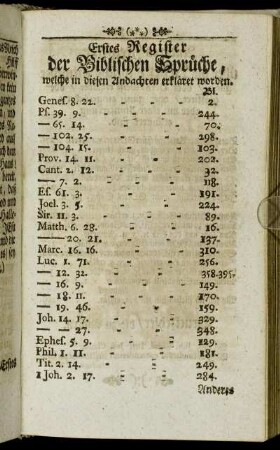 (* * *)
Erstes Register
der Biblischen Sprüche,
welche in diesen Andachten erkläret worden.
Bl.
Genes. 8. 22. - - 2.
Ps. 39. 9. - - 244.
— 65. 14. - - 70.
— 102. 25. - - 298.
— 104. 15. - - 103.
Prov. 14. 11. - - 202.
Cant. 2. 12. - - 32.
— 7. 2. - - 118.
Es. 61. 3. - - 191.
Joel. 3. 5. - - 224.
Sir. 11. 3. - - 89.
Matth. 6. 28. - - 16.
— 20. 21. - - 137.
Marc. 16. 16. - - 310.
Luc. 1. 71. - - 256.
— 12. 32. - - 358-395.
— 16. 9. - - 149.
— 18. 11. - - 170.
— 19. 46. - - 159.
Joh. 14. 17. - - 329.
— — 27. - - 348.
Ephes. 5. 9. - - 129.
Phil. 1. 11. - - 181.
Tit. 2. 14. - - 249.
1 Joh. 2. 17. - - 284.
Anders